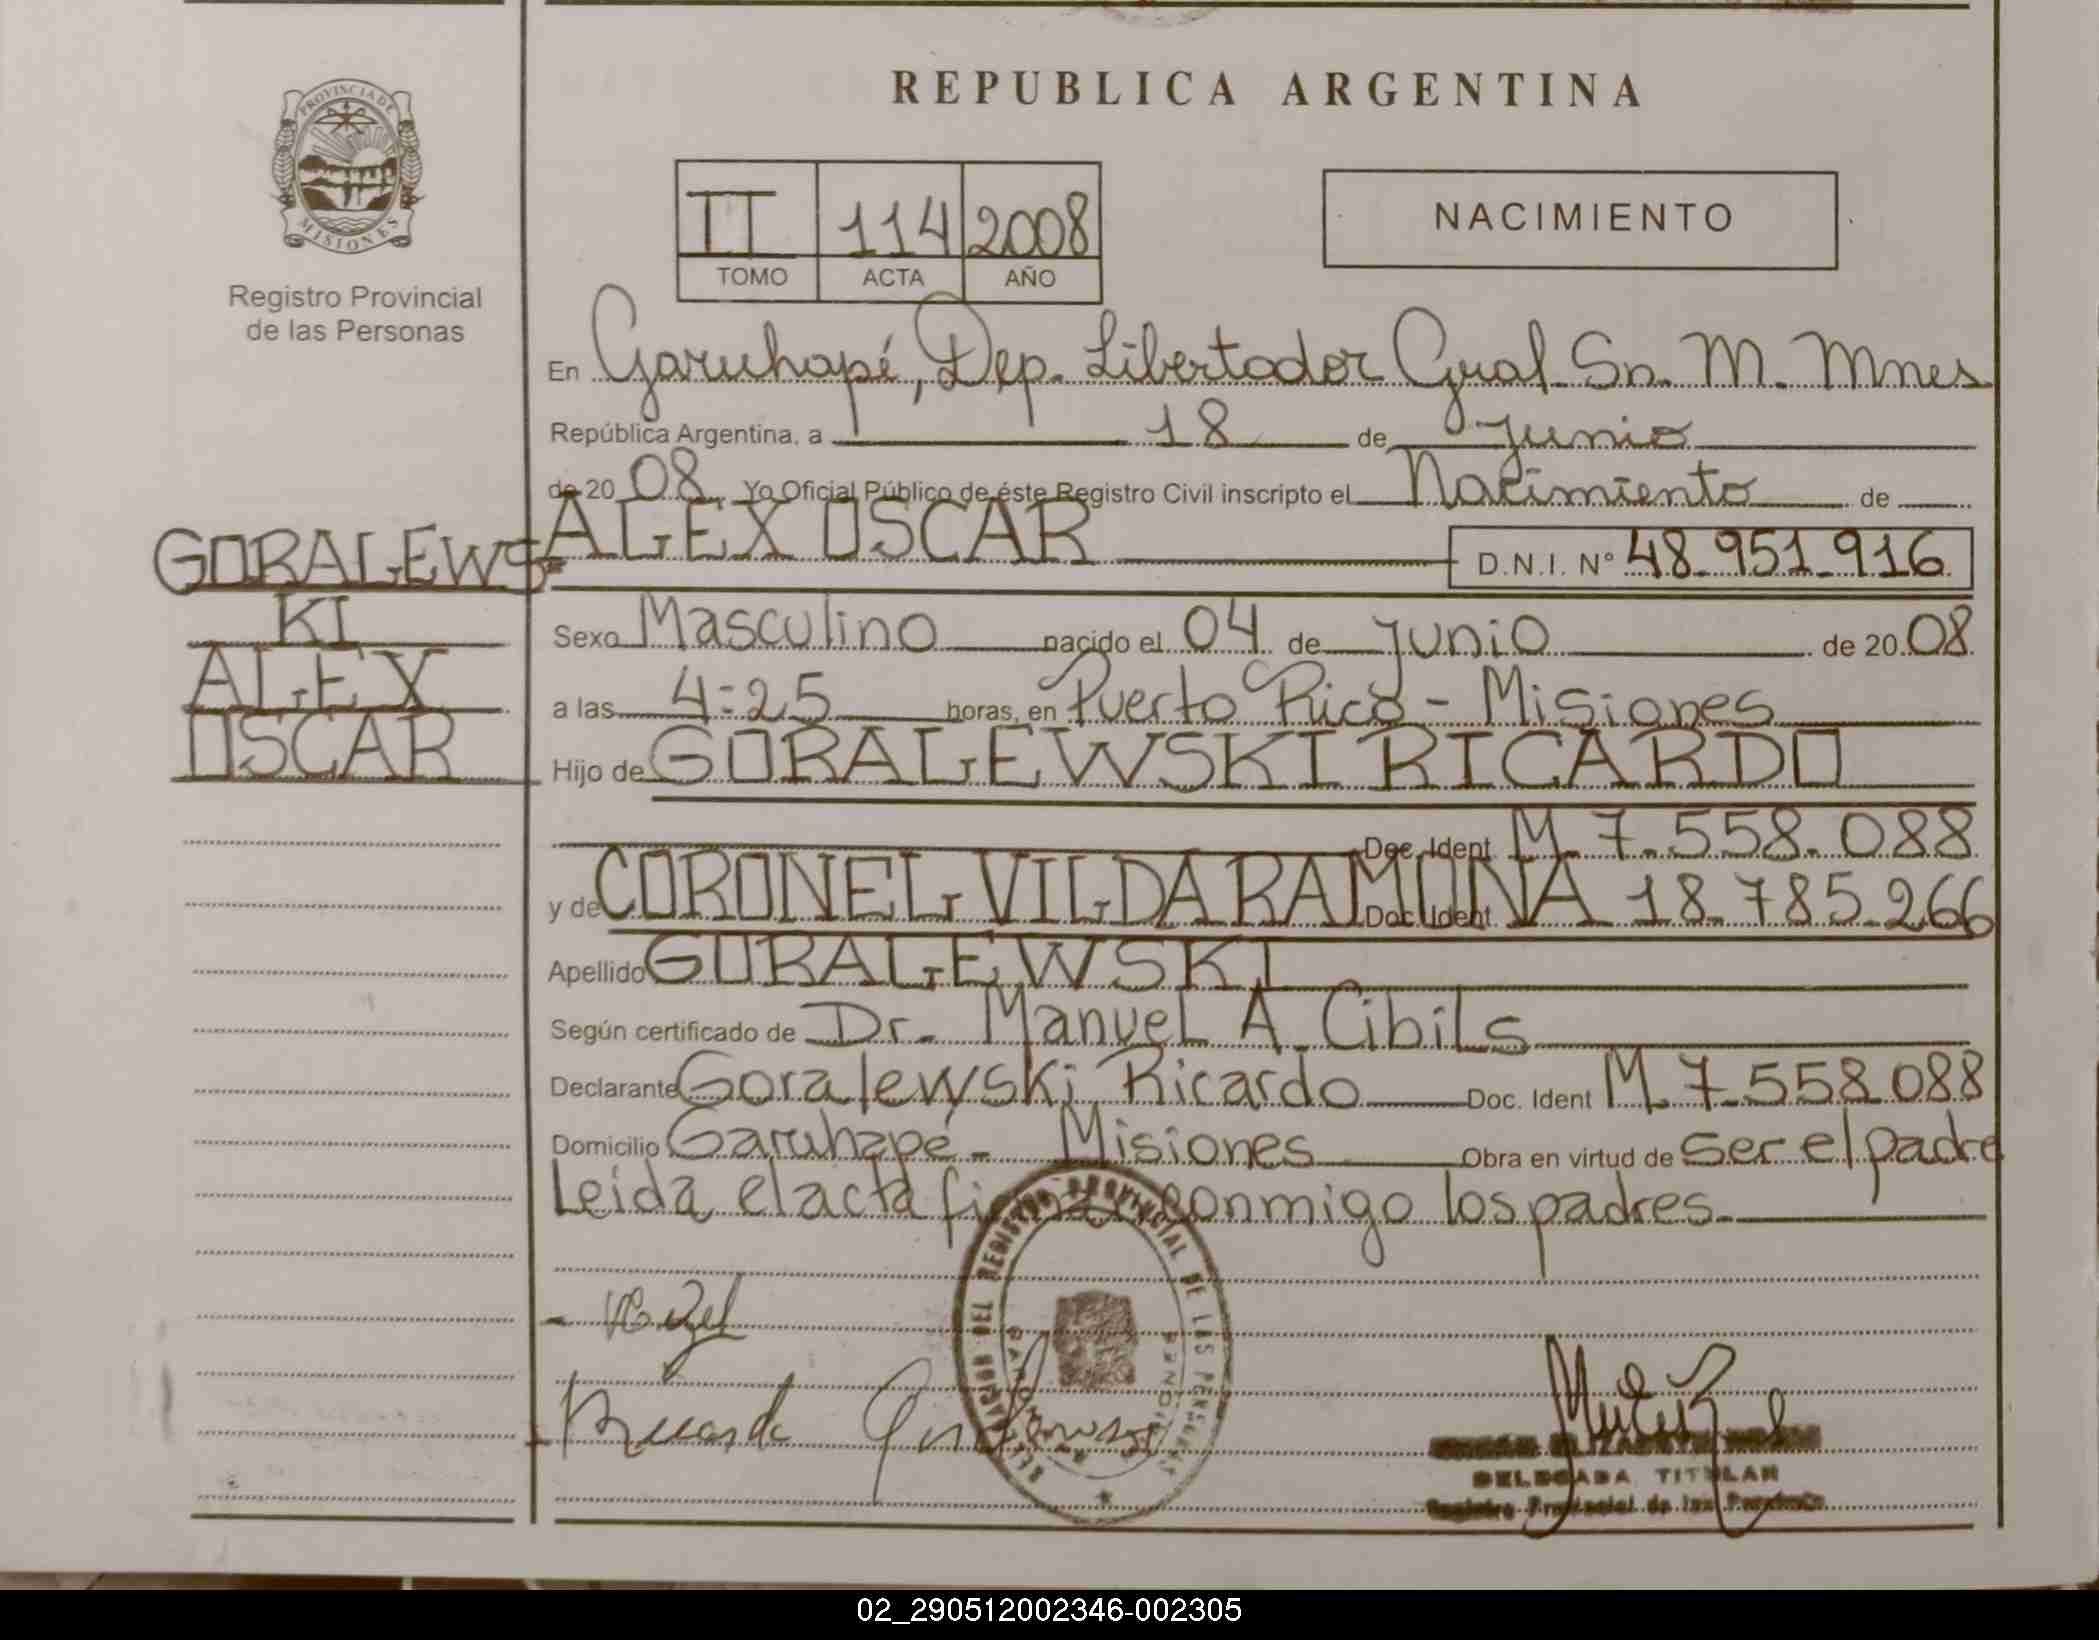 PROVINCIA DE
MISIONES
Registro Provincial
de las Personas
REPUBLICA ARGENTINA
II 114 2008
TOMO ACTA AÑO
NACIMIENTO
En Garuhapé, Dep. Libertador Gral Sn. M. Mnes
República Argentina, a 18 de Junio
de 20 08 Yo Oficial Público de éste Registro Civil inscripto el Nacimiento de
GORALEWS=
KI
ALEX
OSCAR
ALEX OSCAR D.N.I. Nº 48.951.916
Sexo Masculino nacido el 04 de Junio de 20 08
a las 4:25 horas, en Puerto Rico - Misiones
Hijo de GORALEWSKI RICARDO
Doc. Ident M. 7.558.088
y de CORONEL VILDA RAMONA Doc. Ident 18.785.266
Apellido GORALEWSKI
Según certificado de Dr. Manuel A. Cibils
Declarante Goralewski Ricardo Doc. Ident M. 7.558.088
Domicilio Garuhapé - Misiones Obra en virtud de ser el padre
Leida el acta firman conmigo los padres.
DEL REGISTRO PROVINCIAL DE LAS PERSONAS
Ricardo
DELEGADA TITULAR
Registro Provincial de las Personas
02_290512002346-002305